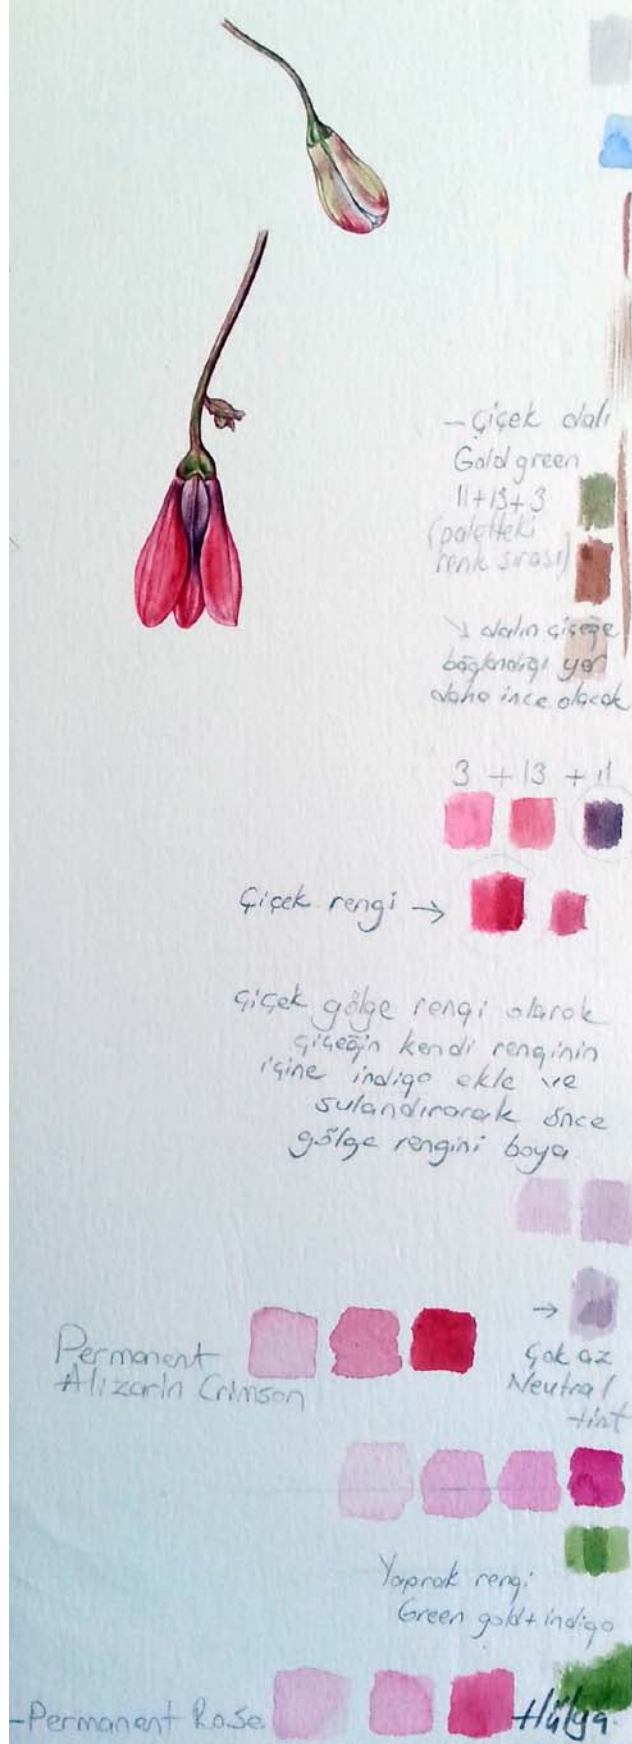 - Çiçek dalı
Gold green
11+13+3
(paletteki
renk sırası)
↘ dalın çiçeğe
bağlandığı yer
daha ince olacak
3 + 13 + 11
Çiçek rengi →
Çiçek gölge rengi olarak
çiçeğin kendi renginin
içine indigo ekle ve
sulandırarak önce
gölge rengini boya.
→
Çok az
Neutral
tint
Permanent
Alizarin Crimson
Yaprak rengi
Green gold+indigo
-Permanent Rose
Hülya